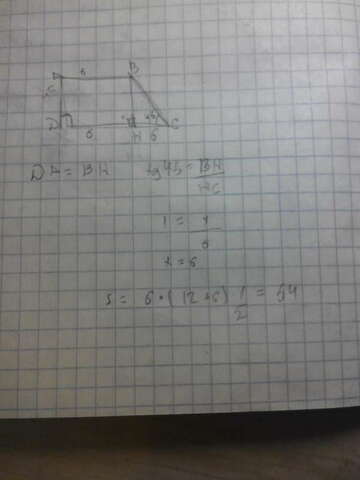 6 B
6
D 6 H 6 C
45
DA = BH tg45 = BH/HC
1 = x/6
x = 6
S = 6 · (12+6) 1/2 = 54